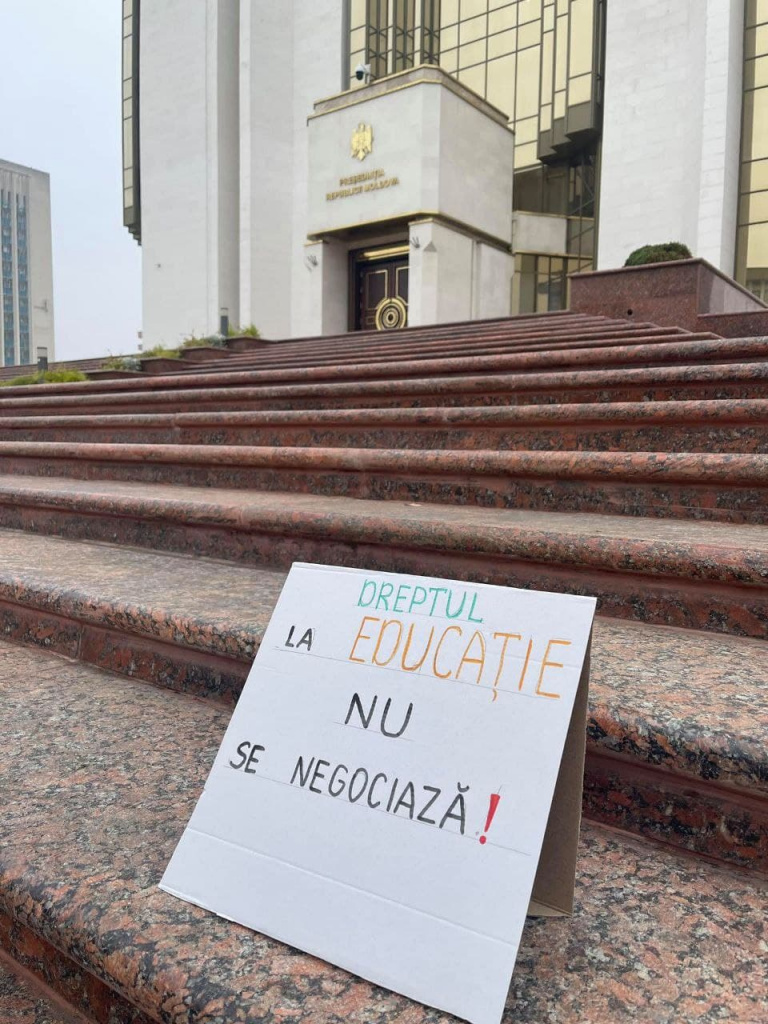 PREȘEDINȚIA
REPUBLICII MOLDOVA
DREPTUL
LA EDUCAȚIE
NU
SE NEGOCIAZĂ!